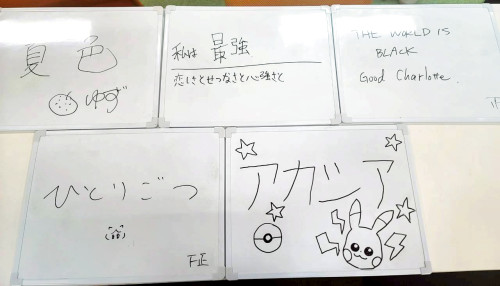 夏色
ゆず
私は 最強
恋しさとせつなさと心強さと
THE WORLD IS
BLACK
Good Charlotte.
正
ひとりごつ
下正
アカシア